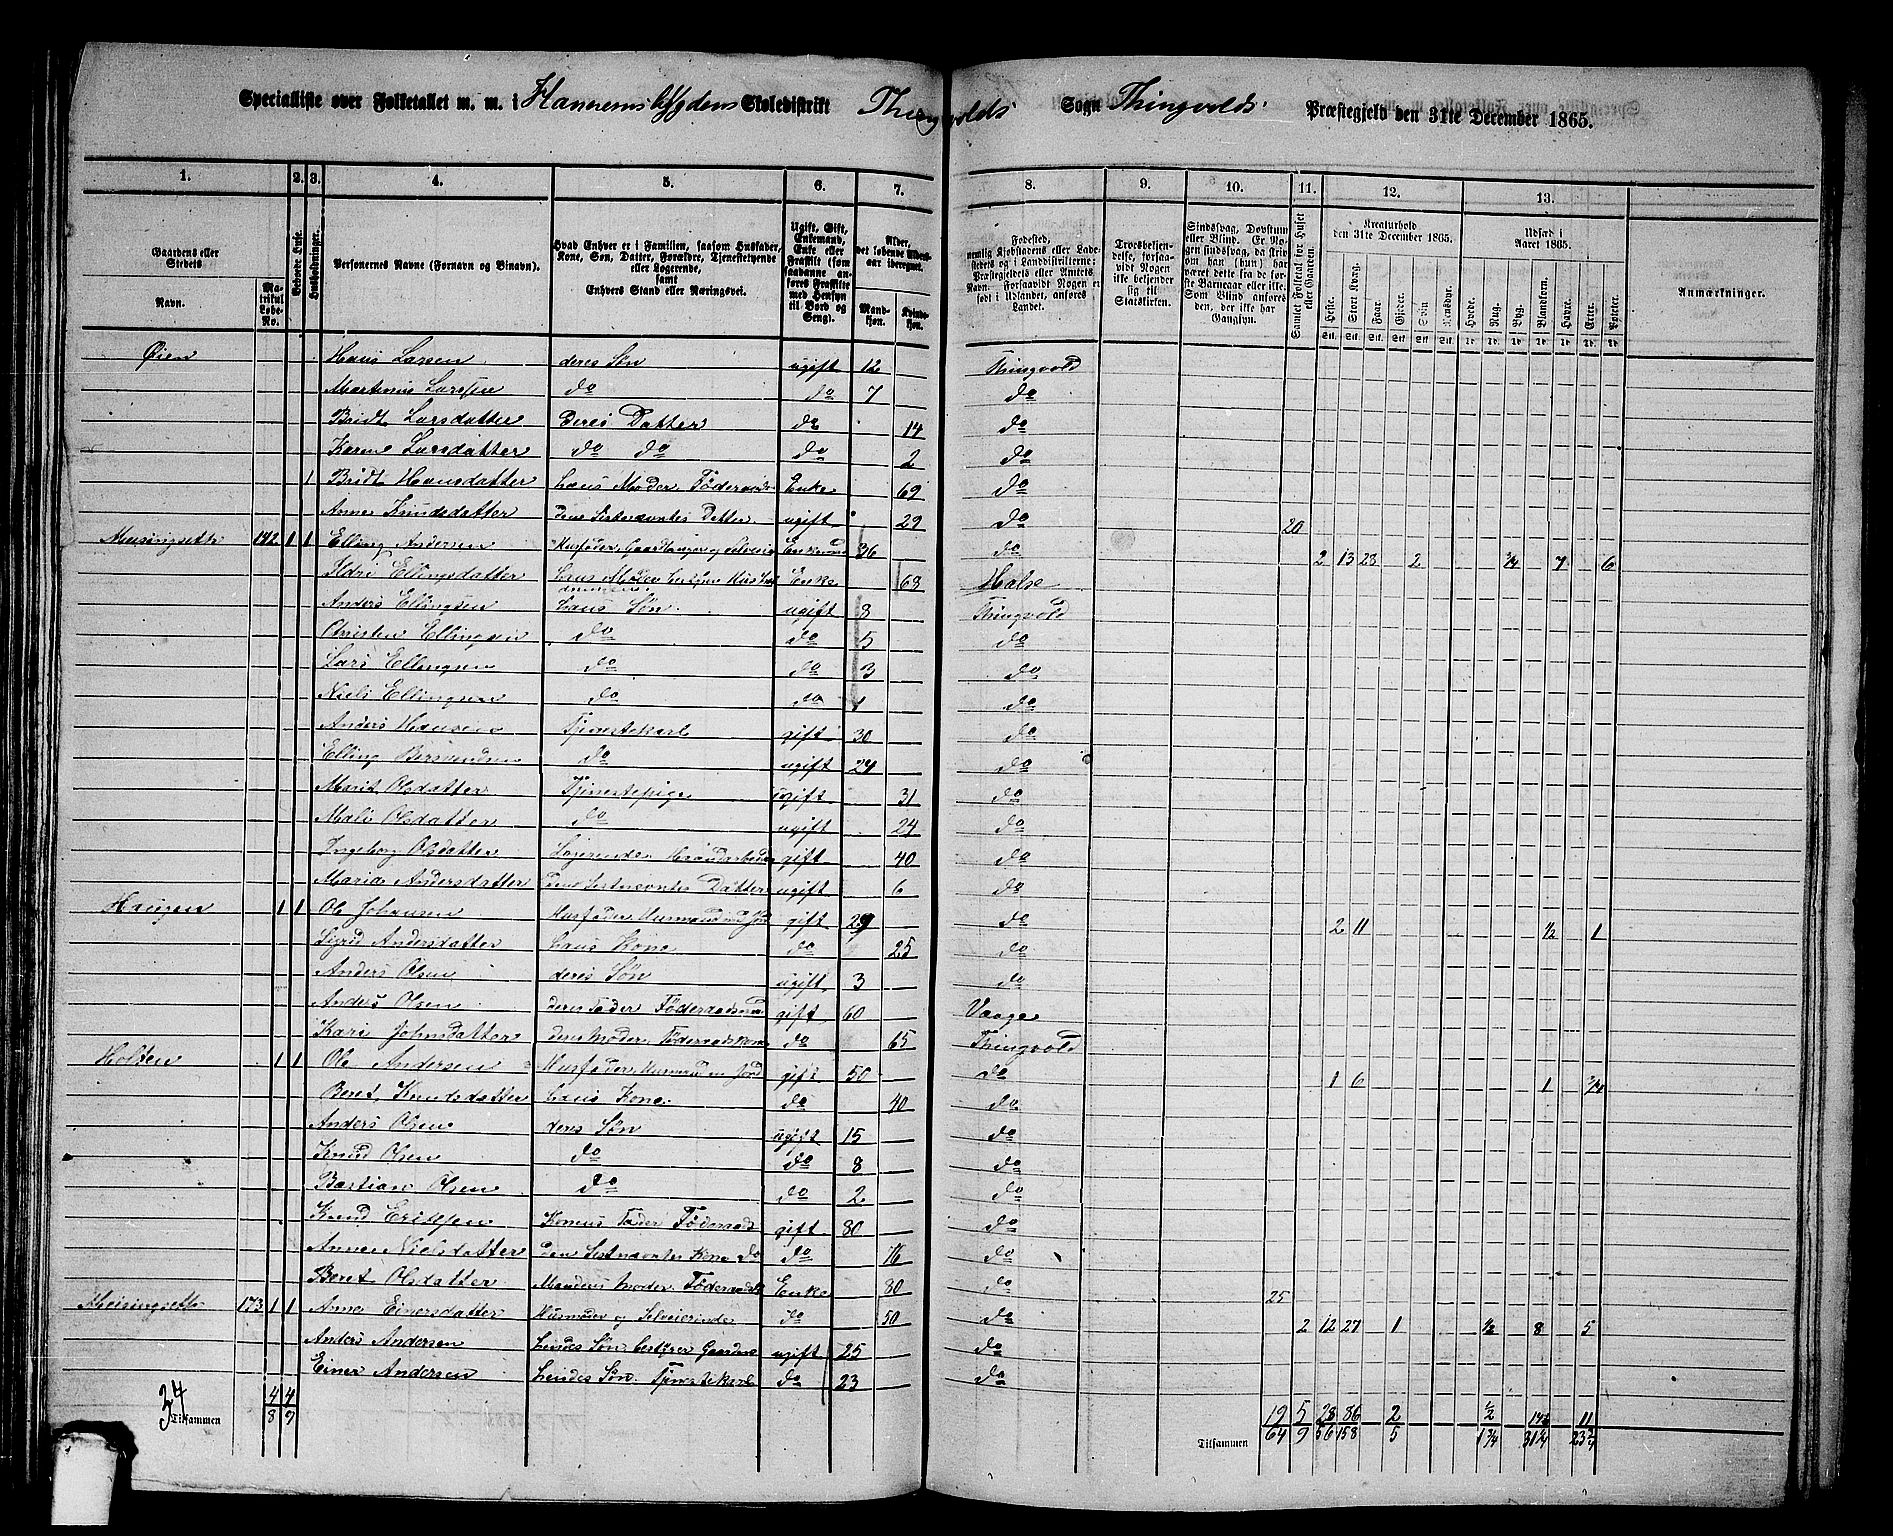 Specialliste over Folketallet m. m. i Hannemsbygdens Skoledistrikt Thingvolds Sogn Thingvolds Præstegjeld den 31te December 1865.
1. 2. 3. 4. 5. 6. 7. 8. 9. 10. 11. 12. 13.
Gaardens eller Stedets Navn. Matrikul Løbe-No. Beboede Huse. Husholdninger.
Personernes Navne (Fornavn og Binavn).
Hvad Enhver er i Familien, saasom Husfader, Kone, Søn, Datter, Forældre, Tjenestetyende eller Logerende, samt Enhvers Stand eller Næringsvei.
Ugift, Gift, Enkemand, Enke eller Fraskilt (som saadanne anføres Fraskilte med Hensyn til Bord og Seng).
Alder, det løbende Alders-aar iberegnet. Mandkjøn. Kvindekjøn.
Fødested, nemlig Kjøbstadens eller Ladestedets eller i Landdistrikterne: Præstegjeldets eller Amtets Navn. Forsaavidt Nogen er født i Udlandet, anføres Landet.
Troesbekjendelse, forsaavidt Nogen ikke bekjender sig til Statskirken.
Sindssvag, Døvstum eller Blind. Er Nogen sindssvag, da skrives om han (hun) har været dette fra de første Barneaar eller ikke. Som Blind anføres den, der ikke har Gangsyn.
Samlet Folketal for Huset eller Gaarden.
Kreaturhold den 31te December 1865. Heste. Stort Kvæg. Faar. Gjeder. Sviin. Rensdyr.
Udsæd i Aaret 1865. Hvede. Rug. Byg. Blandkorn. Havre. Erter. Poteter.
Anmærkninger.
Øien Hans Larsen deres Søn ugift 12 Thingvold
Martinus Larssen do do 7 do
Bridt Larsdatter deres Datter do 14 do
Karen Larsdatter do do do 2 do
1 Bridt Hansdatter hans Moder Föderaads Enke 69 do
Anne Knudsdatter den Sistnævntes Datter ugift 29 do 20
Meisingseth 172 1 1 Elling Andersen Husfader Gaardbruger og Selveier Enkemand 36 do 2 13 23 2 3/4 7 6
Ildri Ellingsdatter hans Moder Enke 68 Halse
Anders Ellingsen hans Søn ugift 8 Thingvold
Christen Ellingsen do do 5 do
Lars Ellingsen do do 3 do
Niels Ellingsen do do 1 do
Anders Hansen Tjenestekarl gift 30 do
Elling do ugift 24 do
Marit Olsdatter Tjenestepige ugift 31 do
Mali Olsdatter do ugift 24 do
Ingeborg Olsdatter Logerende Haandarbeide gift 40 do
Maria Andersdatter den Sistnævntes Datter ugift 6 do
Haugen 1 1 Ole Johansen Husfader Husmand med Jord gift 29 do 2 11 1/2 1
Sigrid Andersdatter hans Kone do 25 do
Anders Olsen deres Søn ugift 3 do
Anders Olsen deres Fader Föderaadsmand gift 60 Vaage
Kari Johnsdatter deres Moder Föderaadskone do 65 Thingvold
Holten 1 1 Ole Andersen Husfader Husmand m Jord gift 50 do 1 6 1 3/4
Beret Knudsdatter hans Kone do 40 do
Anders Olsen deres Søn ugift 15 do
Knud Olsen do do 8 do
Bastian Olsen do do 2 do
Knud Ericssen Konens Fader Föderaads gift 80 do
Anne Nielsdatter den Sistnævntes Kone do do 76 do
Beret Olsdatter Mandens Moder Föderaadsk Enke 80 do 25
Meisingseth 173 1 1 Anne Einersdatter Husmoder og Selveierinde do 50 do 2 12 27 1 1/2 8 5
Anders Andersen hendes Søn bestyrer Gaarden ugift 25 do
Einer Andersen hendes Søn Tjenestekarl do 23 do
34 Tilsammen 4 4 19 5 28 86 2 1/2 11
8 9 Tilsammen 64 9 56 158 5 1 3/4 31 1/4 23 3/4